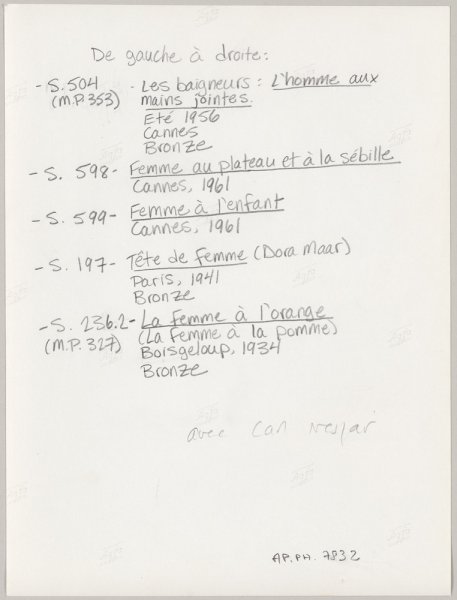 De gauche à droite:
- S. 504 - Les baigneurs : L'homme aux
(M.P. 353) mains jointes.
Eté 1956
Cannes
Bronze
- S. 598 - Femme au plateau et à la sébille
Cannes, 1961
- S. 599 - Femme à l'enfant
Cannes, 1961
- S. 197 - Tête de femme (Dora Maar)
Paris, 1941
Bronze
- S. 236.2 - La femme à l'orange
(M.P. 327) (La femme à la pomme)
Boisgeloup, 1934
Bronze
avec
AP.PH. 7832